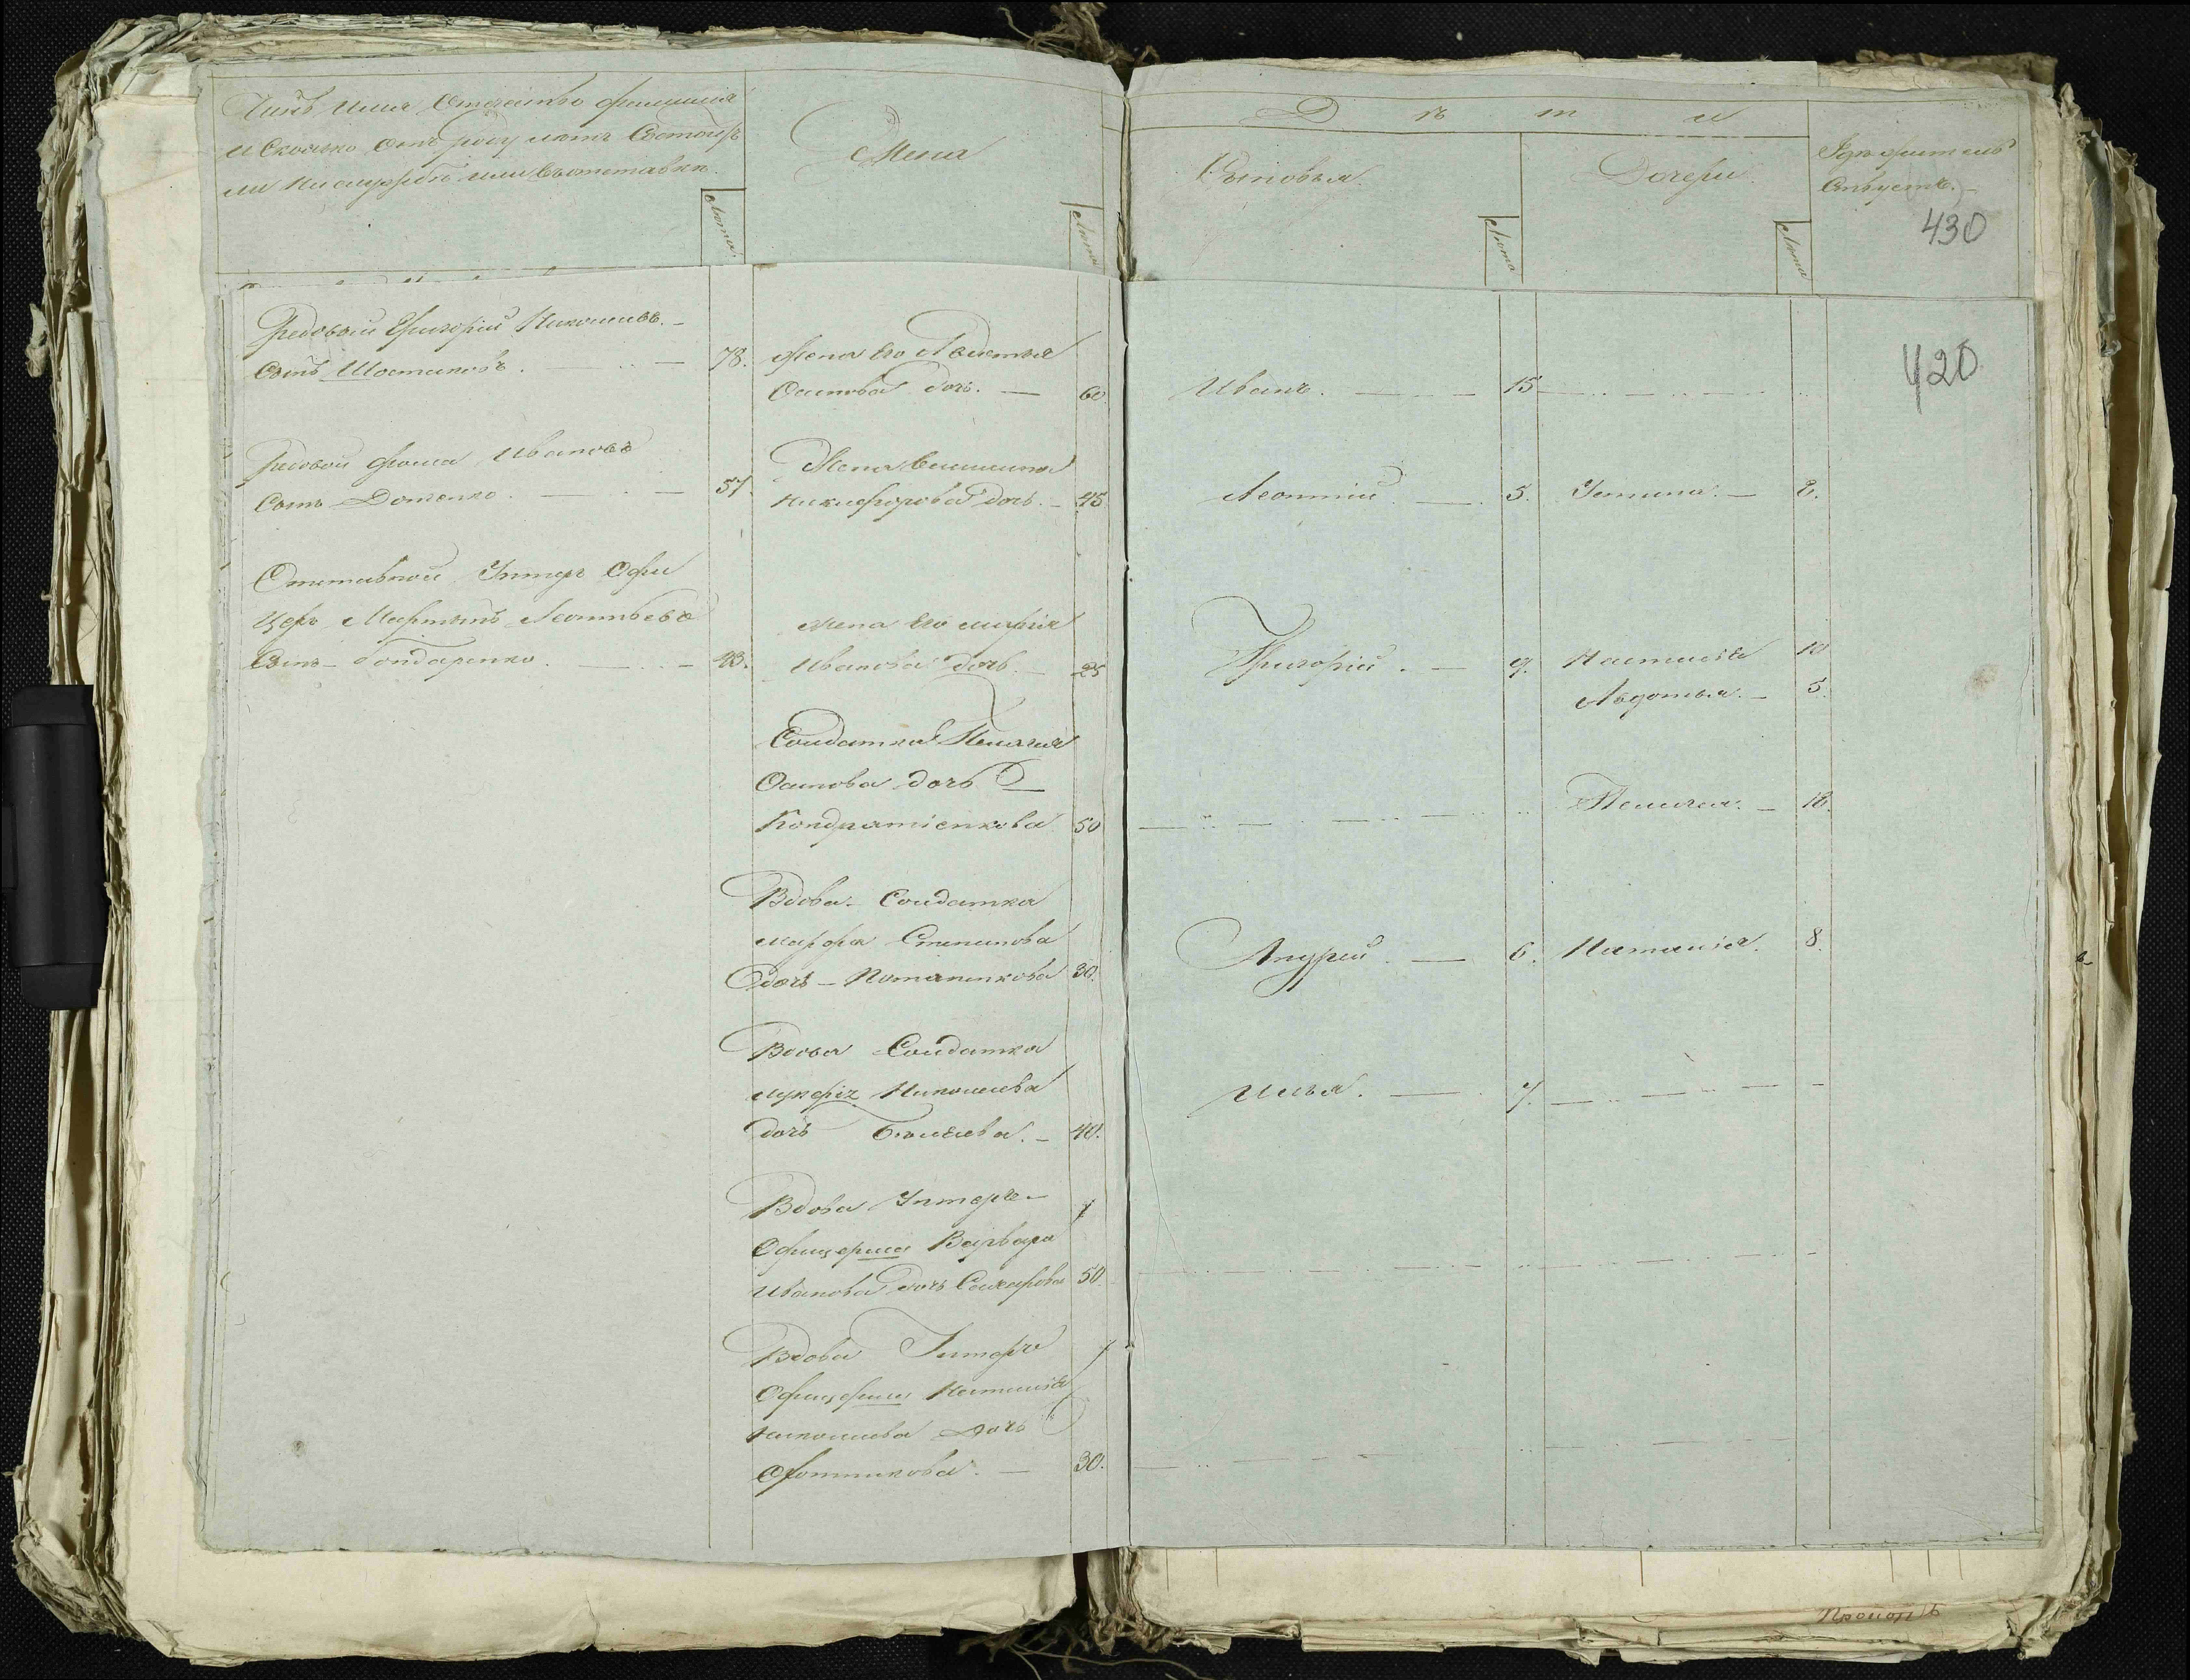 Чинъ имя Отечество фамилия
и Сколько отъ роду летъ Состоитъ
ли на службе или въ отставке.
лета
Жена
лета
Дѣти
Сыновья.
лета
Дочери.
лета
Где жительство
430
Редовый Григорій Николаевъ.
Сынъ Шостаковъ. 78.
Жена Его Авдотья
Осипова дочь. 60.
Иванъ. 15
420
Редовой Фома Ивановъ
Сынъ Доценко. 57.
Жена
Никифорова дочь. 45
Леонтій. 5.
Устина. 2.
Отставной Унтеръ Офи
церъ Мартынъ Леонтьевъ
Сынъ Бондаренко. 43.
Жена Его марфія
Иванова дочь. 25
Григорій. 9.
Настасія 10
Авдотья. 5.
Солдатка Пелагия
Осипова дочь
Кондратіенкова 50
Пелагея. 12.
Вдова Солдатка
марфа Степанова
дочь Потапенкова 30.
Андрей. 6.
Наталія. 8.
Вдова Солдатка
лукерія Николаева
дочь 40.
Илья. 7.
Вдова Унтеръ
Офицерша Варвара
Иванова дочь 50
Вдова Унтеръ
Офицерша Наталія
николаева дочь
30.